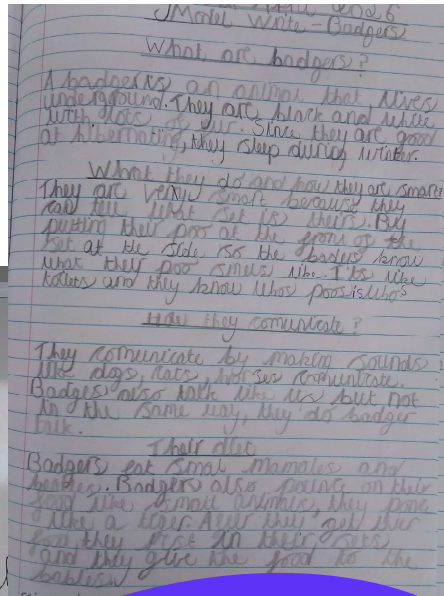 Model Write - Badgers
What are badgers?
A badger is an animal that lives
underground. They are black and white
with lots of fur. Since they are good
at hibernating, they sleep during winter.
What they do and how they are smart
They are very smart because they
can tell what set is theirs. By
putting their poo at the front of the
set at the side so the baders know
what their poo smells like. It's like
toilets and they know whos poo is who's
How they comunicate?
They comunicate by making sounds
like dogs, cats, horses comunicate.
Badges also talk like us but not
in the same way, they do badger
talk.
Their diet
Badgers eat smal mamales and
. Badgers also pounce on their
food like small animals, they
like a tiger. After they get their
food they in their sets
and they give the food to the
babies